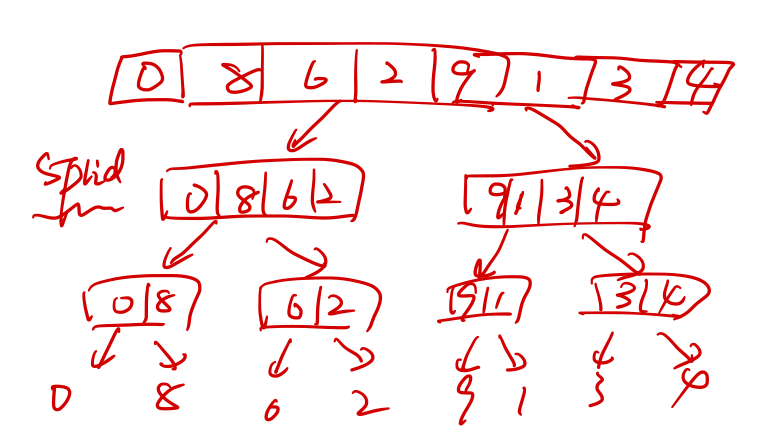 0 8 6 2 9 1 3 4
Splid
0 8 6 2 9 1 3 4
0 8 6 2 9 1 3 4
0 8 6 2 9 1 3 4